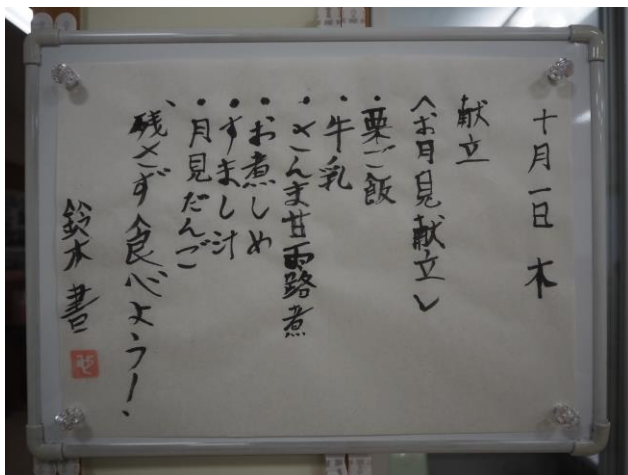 十月一日 木
献立
〈お月見献立〉
・栗ご飯
・牛乳
・さんま甘露煮
・お煮しめ
・すまし汁
・月見だんご
残さず食べよう!
鈴木 書